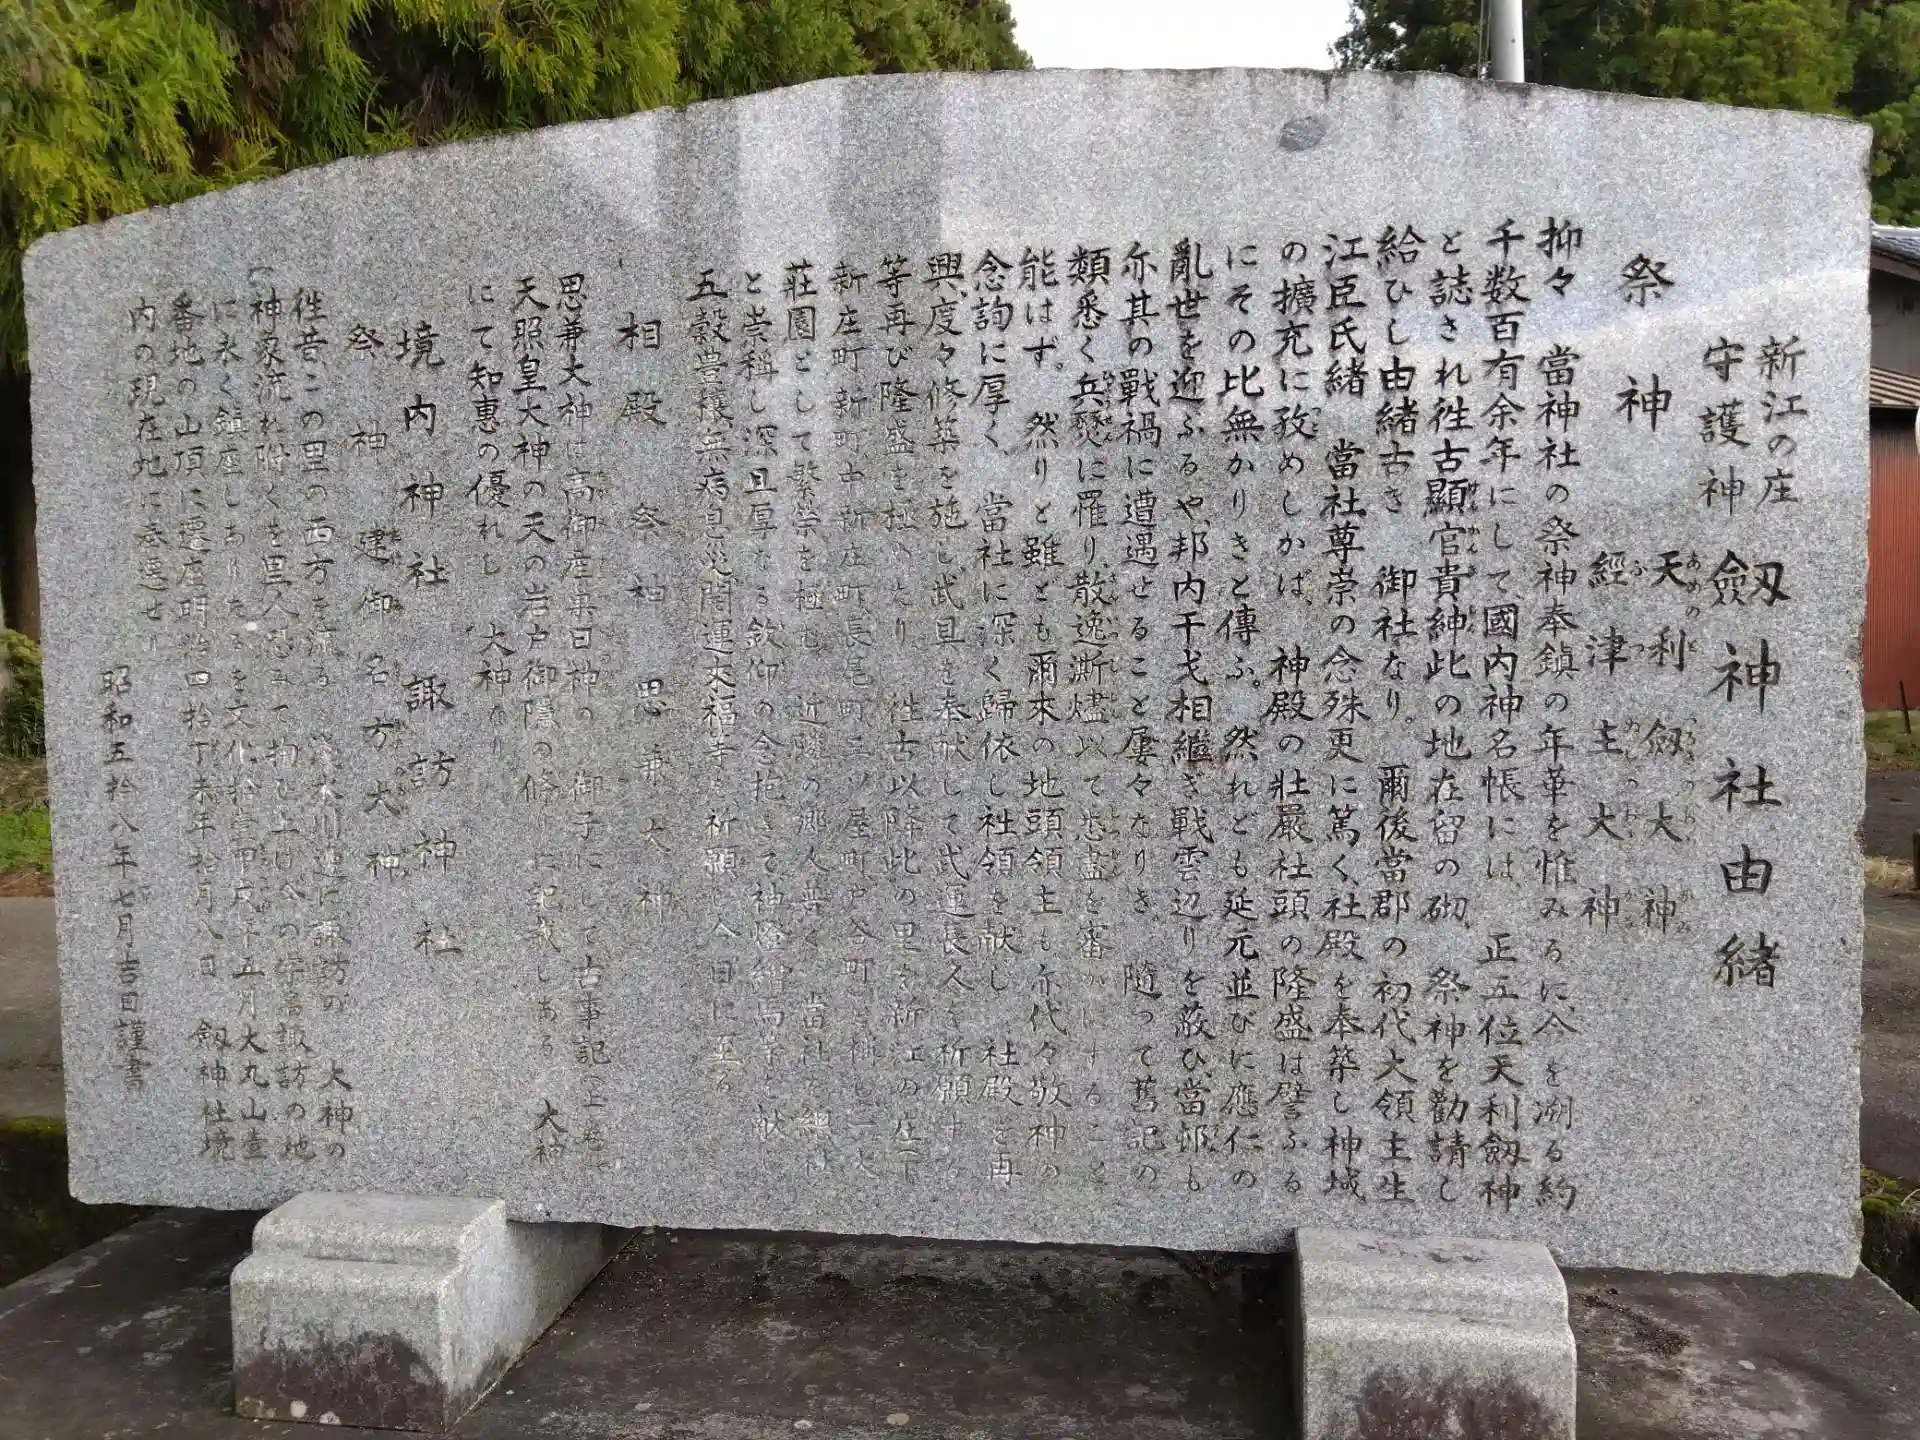 新江の庄
守護神
劔神社由緒
祭神
天利劔大神
經津主大神
抑々 當神社の祭神奉鎮の年華を惟みるに、今を溯る約
千数百有余年にして、國内神名帳には、正五位天利劔神
と誌され徃古顯官貴紳此の地在留の砌、祭神を勸請し
給ひし由緒古き 御社なり。爾後當郡の初代大領主生
江臣氏緒 當社尊崇の念殊更に篤く、社殿を奉築し神域
の擴充に孜めしかば、神殿の壯嚴社頭の隆盛は譬ふる
にその比無かりきと傳ふ。然れども延元並びに應仁の
亂世を迎ふるや、邦内干戈相継ぎ戰雲辺りを蔽ひ、當郷も
亦其の戰禍に遭遇せること屢々なりき。随って舊記の
類悉く兵燹に罹り、散逸澌燼以て悉盡を審かにすること
能はず。然りと雖ども爾来の地頭領主も亦代々敬神の
念洵に厚く、當社に深く歸依し社領を献し、社殿を再
興、度々修築を施し武具を奉献して武運長久を祈願する
等再び隆盛を極めたり 徃古以降此の里を新江の庄下
新庄町新町中新庄町長屯町三ツ屋町戸谷町と稱し一大
莊園として繁榮を極む 近隣の郷人普く 當社を総社
と崇称し深且厚なる欽仰の念抱きて神燈繪馬等を献し
五穀豊穰無病息災開運来福等を祈願し今日に至る
相殿 祭神 思兼大神
思兼大神は高御産巣日神の 御子にして古事記(上巻)
天照皇大神の天の岩戸御隱の條りに記載しある 大神
にて知惠の優れし 大神なり
境内神社 諏訪神社
祭神 建御名方大神
徃昔この里の西方を流る 川辺に諏訪の 大神の
神象流れ附くを里人恐みて掬ひ上げ今の字高諏訪の地
に永く鎮座しありたるを文化拾壹甲戌年五月大丸山壹
番地の山頂に遷座明治四拾丁未年拾月八日 劔神社境
内の現在地に奉遷せり
昭和五拾八年七月吉日謹書